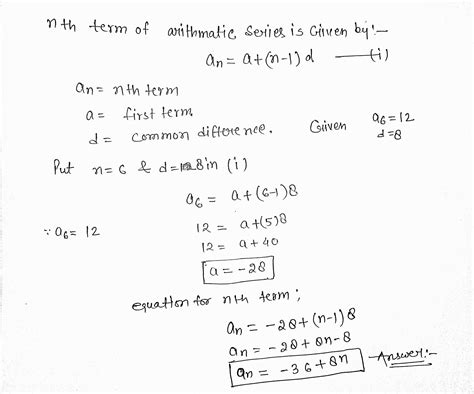 nth term of arithmatic series is Given by:-
an = a+(n-1)d —(i)
an = nth term
a = first term
d = common difference. Given a6 = 12
d = 8
Put n=6 & d=8 in (i)
a6 = a+(6-1)8
∵ a6 = 12 12 = a+(5)8
12 = a+40
a = -28
equation for nth term;
an = -28+(n-1)8
an = -28+8n-8
an = -36+8n Answer:-